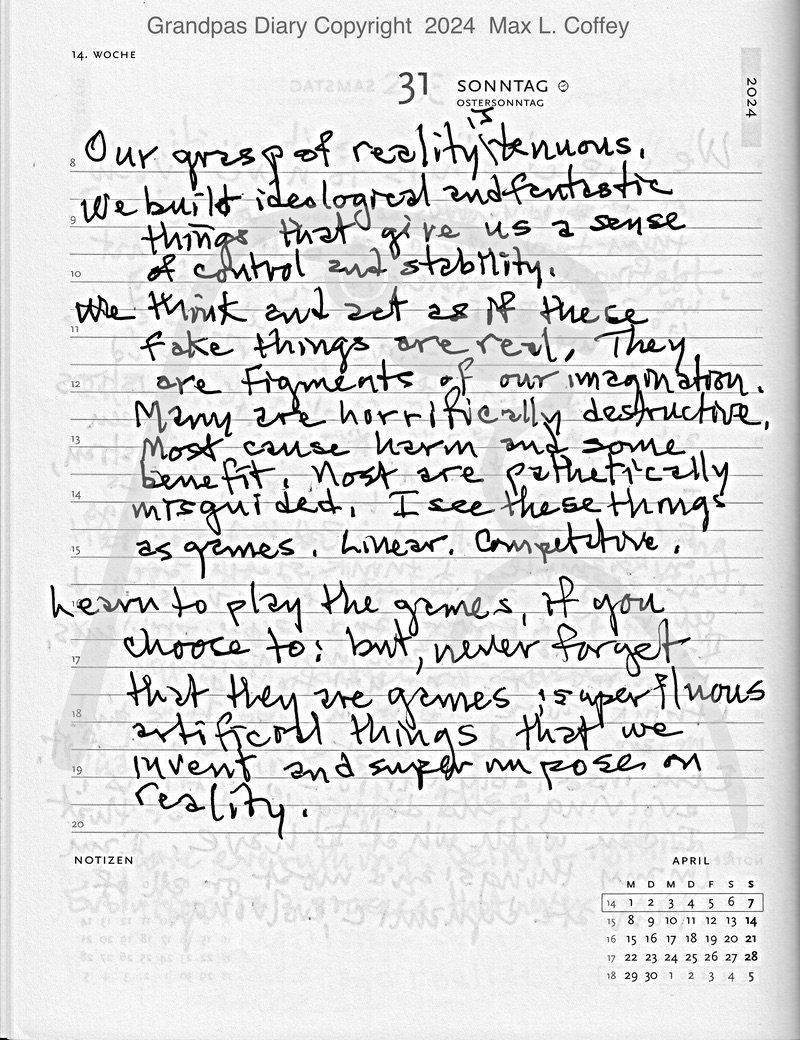 Grandpas Diary Copyright 2024 Max L. Coffey
14. WOCHE
31 SONNTAG
OSTERSONNTAG
2024
is
8 Our grasp of reality \tenuous.
We built ideological and fantastic
9 things that give us a sense
10 of control and stability.
We think and act as if these
11 fake things are real. They
12 are figments of our imagination.
Many are horrifically destructive.
13 Most cause harm and some
benefit. Most are pathetically
14 misguided. I see these things
15 as games. Linear. Competetive.
16 Learn to play the games, if you
choose to; but, never forget
17 that they are games; superfluous
18 artificial things that we
19 invent and superimpose on
reality.
20
NOTIZEN
APRIL
M D M D F S S
14 1 2 3 4 5 6 7
15 8 9 10 11 12 13 14
16 15 16 17 18 19 20 21
17 22 23 24 25 26 27 28
18 29 30 1 2 3 4 5